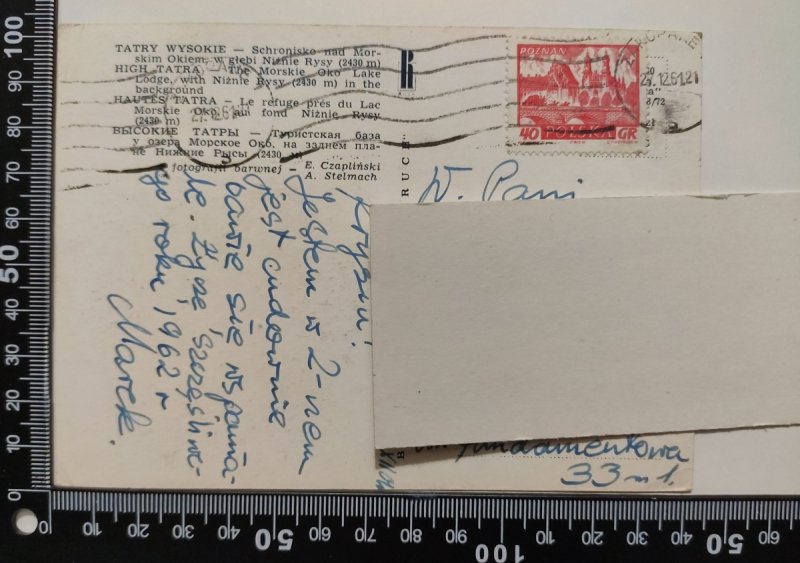 TATRY WYSOKIE — Schronisko nad Mor-
skim Okiem, w głębi Niżnie Rysy (2430 m)
HIGH TATRA — The Morskie Oko Lake
Lodge, with Niżnie Rysy (2430 m) in the
background
HAUTES TATRA — Le refuge près du Lac
Morskie Oko, au fond Niżnie Rysy
(2430 m)
ВЫСОКИЕ ТАТРЫ — Туристская база
у озера Морское Око, на заднем пла-
не Нижние Рысы (2430 м)
fotografii barwnej — E. Czapliński
A. Stelmach
RUCH
POZNAŃ
40 POLSKA GR
ZAKOPANE
27.12.61.21
Krysiu!
Jestem w Z-nem
jest cudownie
bawię się wspania-
le. Życzę szczęśliwe-
go roku 1962 r
Marek.
W. Pani
fundamentowa
33 m 1
0 10 20 30 40 50 60 70 80 90 100
10 20 30 40 50 60 70 80 90 100 10 20 30 40 50 60